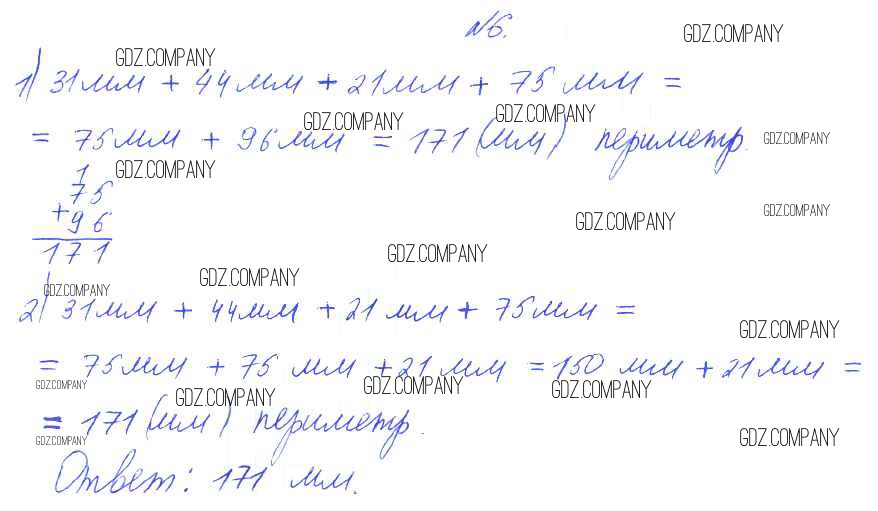 №6.
GDZ.COMPANY
GDZ.COMPANY
1) 31мм + 44мм + 21мм + 75 мм =
GDZ.COMPANY
GDZ.COMPANY
= 75мм + 96мм = 171 (мм) периметр.
GDZ.COMPANY
GDZ.COMPANY
1
75
+96
171
GDZ.COMPANY
GDZ.COMPANY
GDZ.COMPANY
GDZ.COMPANY
GDZ.COMPANY
2) 31мм + 44мм + 21 мм + 75мм =
GDZ.COMPANY
= 75мм + 75 мм + 21 мм = 150 мм + 21мм =
GDZ.COMPANY
GDZ.COMPANY
GDZ.COMPANY
GDZ.COMPANY
= 171 (мм) периметр.
GDZ.COMPANY
GDZ.COMPANY
Ответ: 171 мм.